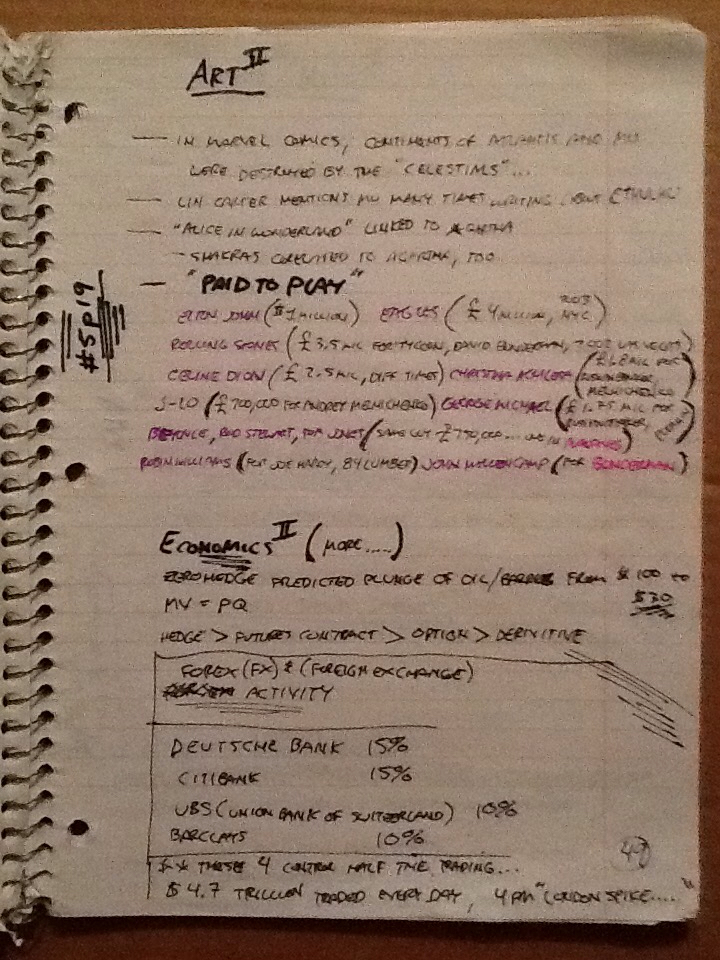 ART II
— IN MARVEL COMICS, CONTINENTS OF ATLANTIS AND MU
WERE DESTROYED BY THE "CELESTIALS"...
— LIN CARTER MENTIONS MU MANY TIMES WRITING ABOUT CTHULHU
— "ALICE IN WONDERLAND" LINKED TO AGARTHA
TO AGARTHA, TOO
— "PAID TO PLAY"
#5p19
ELTON JOHN ($1 MILLION) EAGLES (£ 4 MILLION, NYC)
ROLLING STONES (£ 3.5 MIL FOR TYCOON, DAVID BONDERMAN, 2002 LAS VEGAS)
CELINE DION (£ 2.5 MIL, DIFF TIMES) CHRISTINA (MIL FOR
MELNICHENKO)
J-LO (£700,000 FOR ANDREY MELNICHENKO) GEORGE MICHAEL (£1.75 MIL FOR
BEYONCE, ROD STEWART, TOM JONES (SAME GUY £750,000... ONE IN)
ROBIN WILLIAMS (FOR JOE HARDY, 84 LUMBER) JOHN MELLENCAMP (FOR BONDERMAN)
ECONOMICS II (MORE.....)
ZEROHEDGE PREDICTED PLUNGE OF OIL/BARREL FROM $100 TO
$30
MV = PQ
HEDGE > FUTURES CONTRACT > OPTION > DERIVITIVE
FOREX (FX) & (FOREIGN EXCHANGE)
ACTIVITY
DEUTSCHE BANK 15%
CITIBANK 15%
UBS (UNION BANK OF SWITZERLAND) 10%
BARCLAYS 10%
** THESE 4 CONTROL HALF THE TRADING...
$ 4.7 TRILLION TRADED EVERY DAY, 4 PM "LONDON SPIKE...."